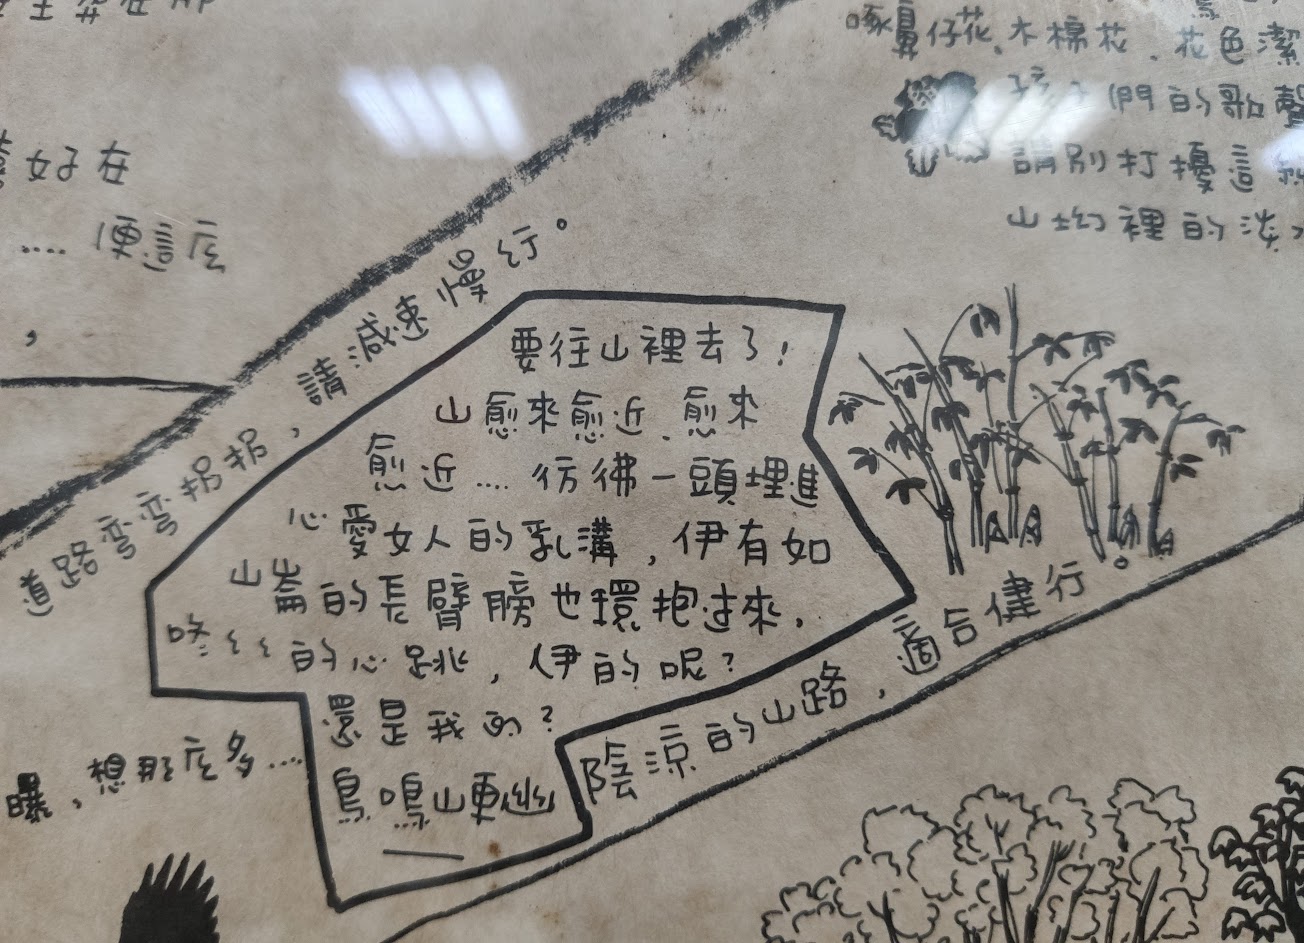 好在
.... 便這底
,
啄鼻仔花、木棉花、花色潔
孩子們的歌聲
請別打擾這
山坳裡的淡水
道路弯弯拐拐,請減速慢行。
要往山裡去了!
山愈來愈近、愈來
愈近....彷彿一頭埋進
心愛女人的乳溝,伊有如
山崙的長臂膀也環抱过來,
咚ミミ的心跳,伊的呢?
還是我的?
鳥鳴山更幽
陰涼的山路,適合健行。
曝,想那底多....